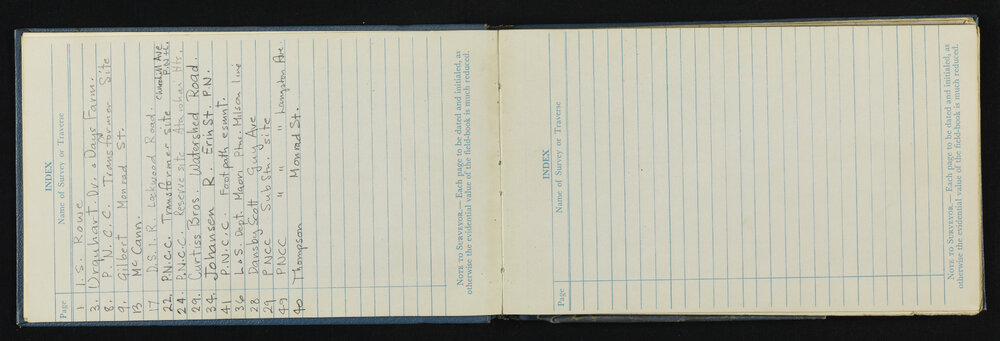 INDEX
Page Name of Survey or Traverse
1 I.S. Rowe
3. Urquhart. Dv. & Days Farm.
8. P. N. C. C. Transformer Site
9. Gilbert Monrad St.
13 McCann.
17 D.S.I.R. Lockwood Road.
22. P.N.C.C. Transformer site Churchill Ave P.Nth.
24. P.N.C.C. Reserve site Atawhai Hts.
29. Curtiss Bros. Watershed Road.
34. Johansen R. Erin St. P.N.
41 P.N.C.C. Footpath esmnt.
36 L & S. Dept. Maori Ptn. Milson Line
28 Dansby Scott Guy Ave
29 PNCC Sub Stn. site
49 PNCC " " " Langston Ave.
40 Thompson Monrad St.
NOTE TO SURVEYOR.— Each page to be dated and initialed, as
otherwise the evidential value of the field-book is much reduced.
INDEX
Page Name of Survey or Traverse
NOTE TO SURVEYOR.— Each page to be dated and initialed, as
otherwise the evidential value of the field-book is much reduced.